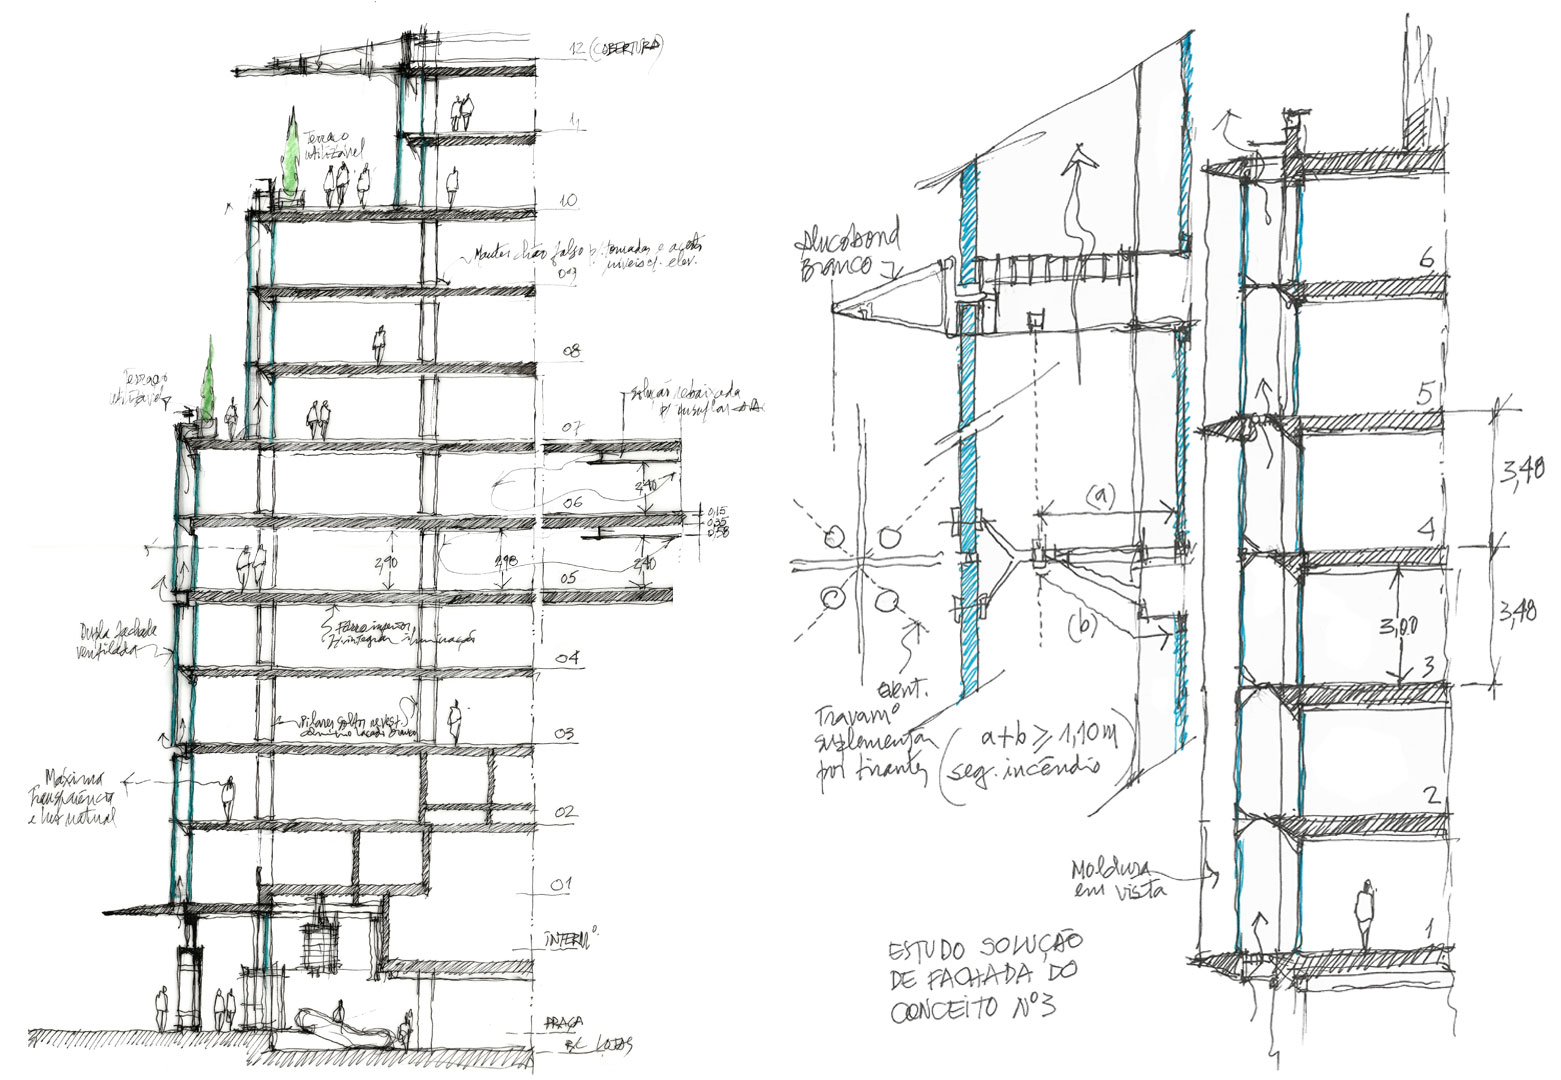 12 (COBERTURA)
11
Terraço
utilizável
10
Manter chão falso p/ tomadas e
níveis
09
08
Terraço
utilizável
solução rebaixada
p/ insuflar
07
2,40
06
0,15
0,35
0,58
2,90
2,90
2,40
05
Dupla fachada
ventilada
Forro
p/ integrar iluminação
04
Pilares
03
Máxima
Transparência
e luz natural
02
01
INTERM.º
PRAÇA
LOJAS
Alucobond
Branco
(a)
(b)
event.
Travam.º
suplementar
por tirantes
(a+b ⩾ 1,10m
seg. incêndio)
6
5
3,48
4
3,00
3,48
3
2
Moldura
em vista
1
ESTUDO SOLUÇÃO
DE FACHADA DO
CONCEITO Nº3